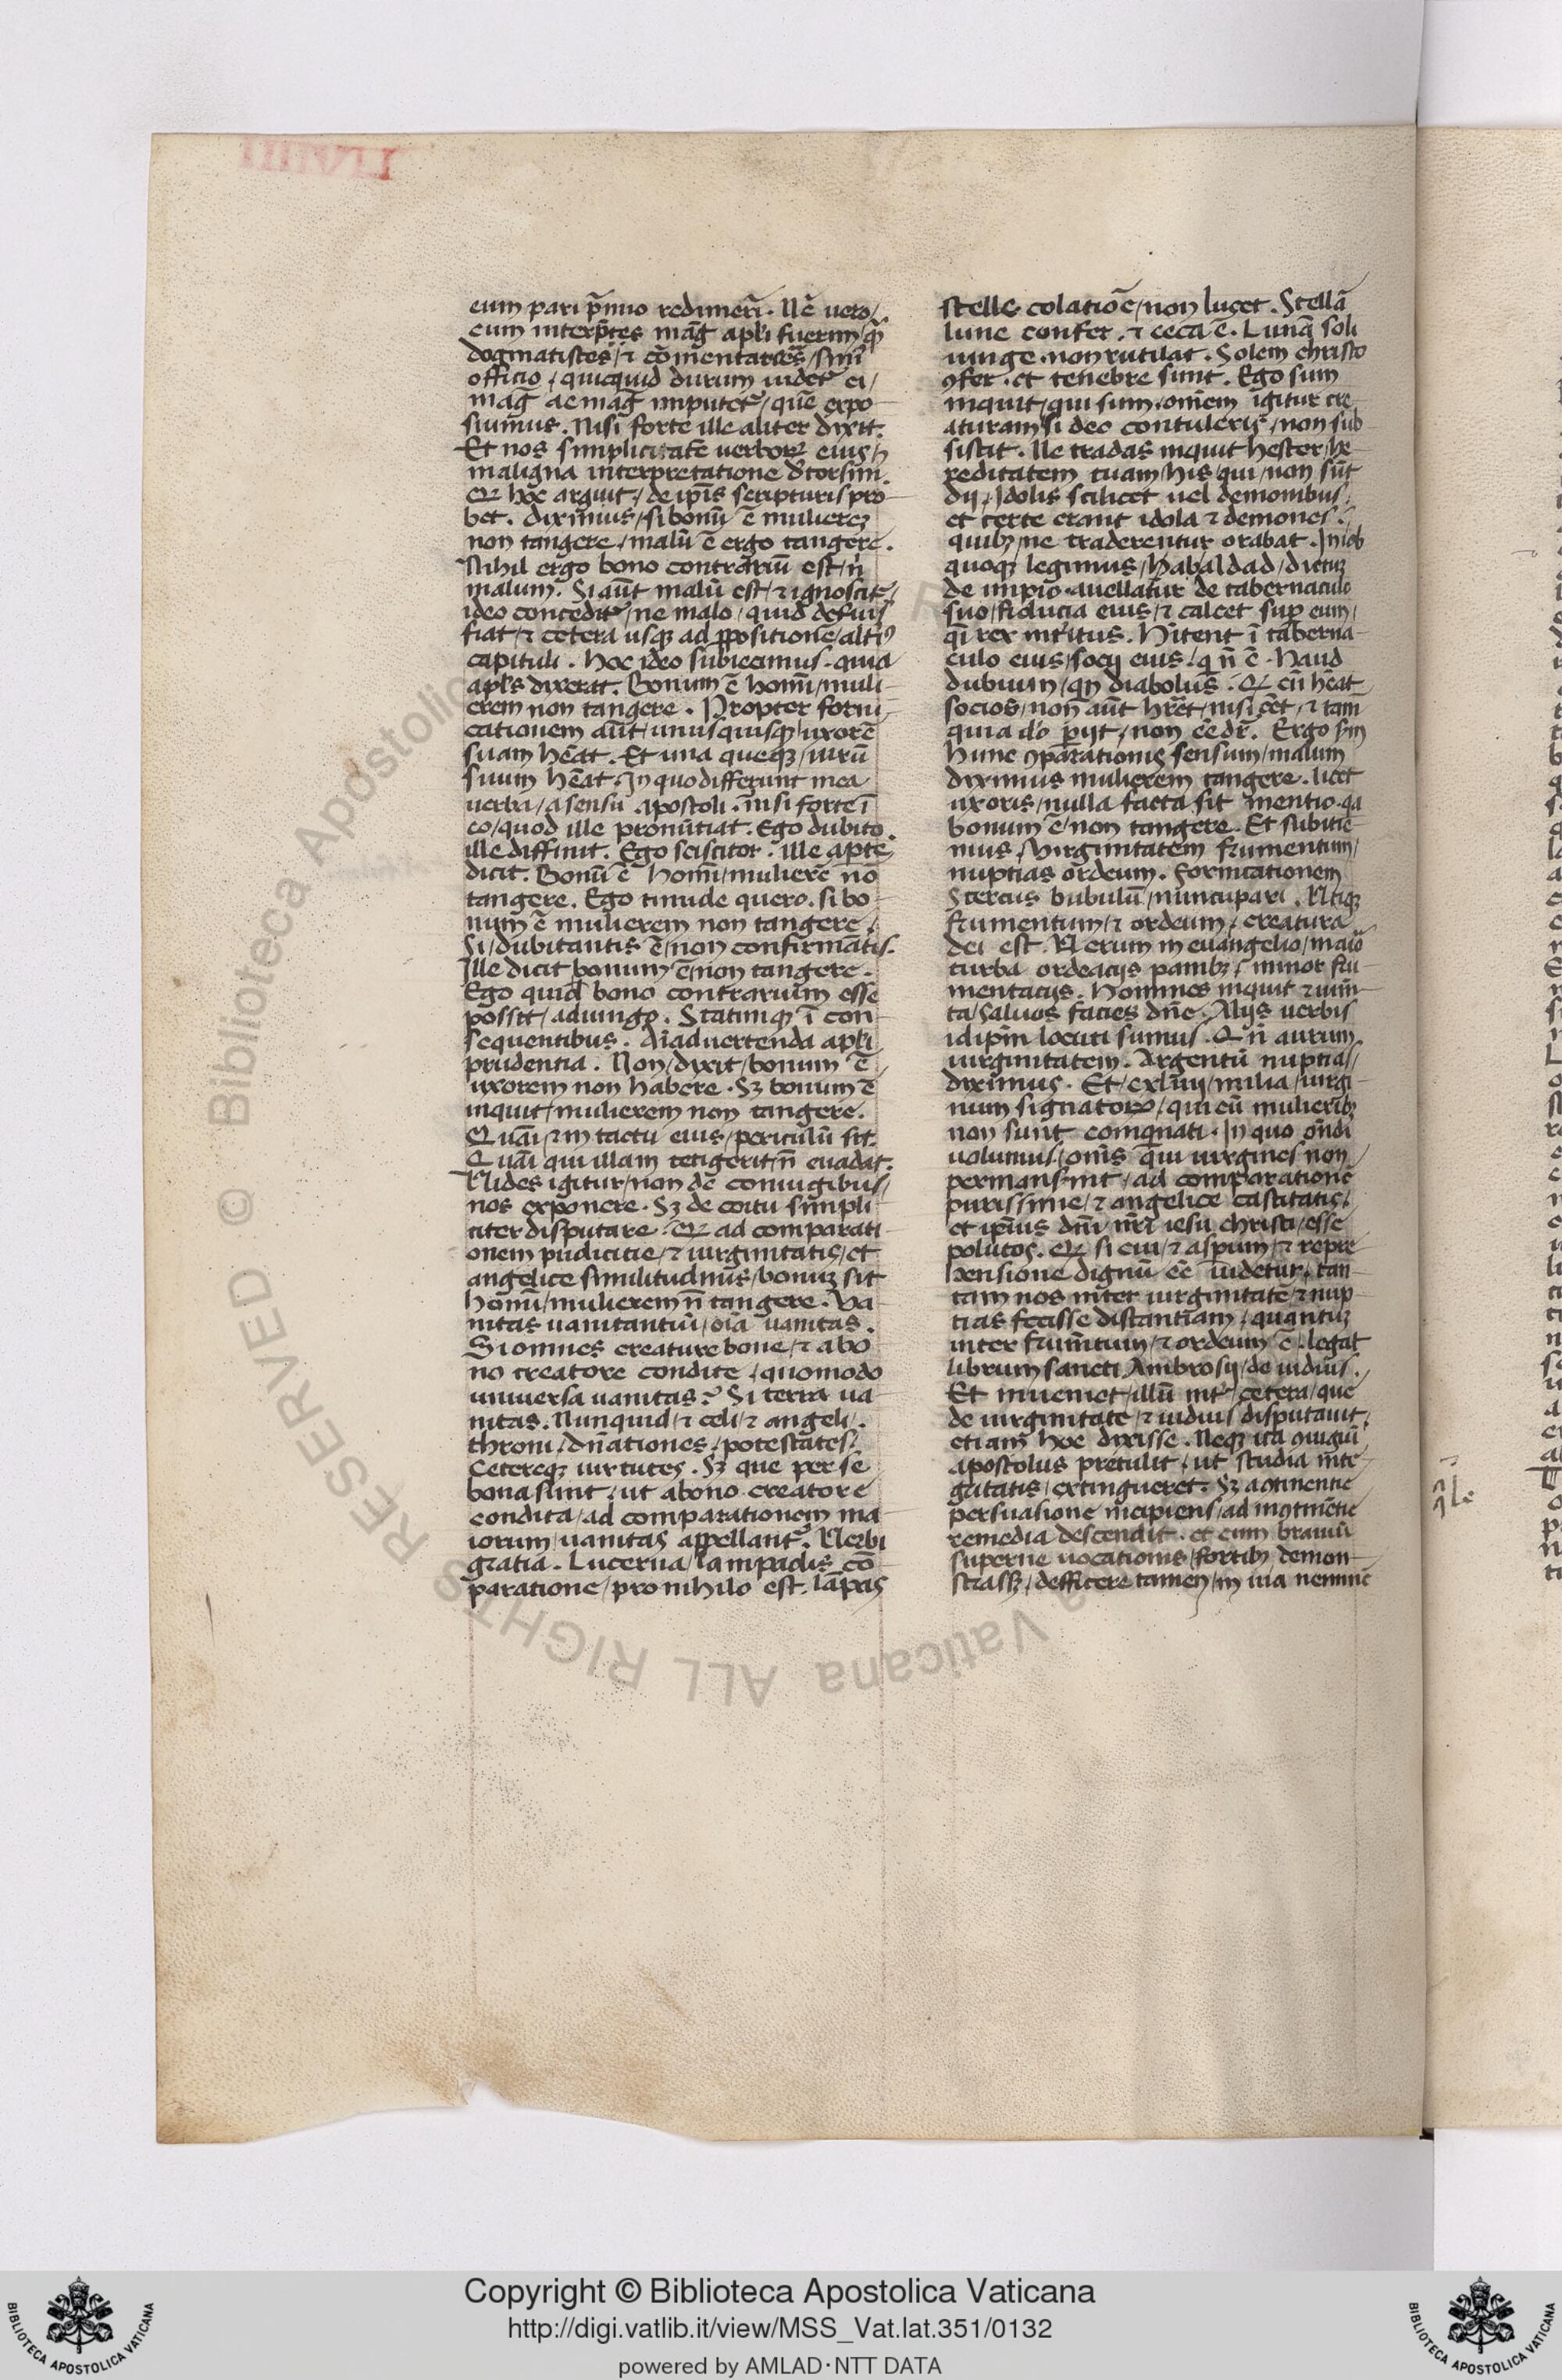 eum pari p̄mio redimeri. Nē uero/
eum interp̄tes mag̃ apl'i fuerim/ q̄
dogmatistes/ ⁊ cōmentatores/ sim̄
officio/ quicquid durum uidet' ei/
mag̃ ac mag̃ imputet'/ quē expo
suimus. Nisi forte ille aliter dixit.
Et nos simplicitatē uerboꝝ eius/
maligna interpretatione d'torsim'.
Q hoc arguit/ de ip̄is scripturis pro
bet. diximus/ si bonū ē mulierez
non tangere/ malū ē ergo tangere.
Nihil ergo bono contrariū est/ n̄
malum. Si aūt malū est/ ⁊ ignoscit'/
ideo concedit'/ ne malo/ quid deterius
fiat/ ⁊ cetera usqꝫ ad p̄positionē/ alt'i9
capituli. Hoc ideo subiecimus. quia
apl's dixerat. Bonum ē homī/ muli
erem non tangere. Propter forni
cationem aūt/ unusquisqꝫ/ uxorē
suam hēat. Et una queqꝫ/ uirū
suum hēat. In quo differunt mea
uerba/ a sensu apostoli. nisi forte ī
eo/ quod ille pronūtiat. Ego dubito.
ille diffinit. Ego sciscitor. ille apte
dicit. Bonū ē homī/ mulierē nō
tangere. Ego timide quero. si bo
num ē mulierem non tangere.
Si/ dubitantis ē/ non confirmātis.
Ille dicit bonum ē/ non tangere.
Ego quid bono contrarium esse
possit/ adiungo. Statimqꝫ ī con
sequentibus. Aīaduertenda apl'i
prudentia. Non/ dixit/ bonum ē
uxorem non habere. Sꝫ bonum ē
inquit/ mulierem non tangere.
Quāi ⁊ in tactu eius/ periculū sit.
Quāi qui illam tetigerit/ n̄ euadat.
Uides igitur/ non dē coniugibus/
nos exponere. Sꝫ de coitu simpli
citer disputare. Q ad comparati
onem pudicitie/ ⁊ uirginitatis/ et
angelice similitudinis/ bonuꝫ sit
homī/ mulierem n̄ tangere. Va
nitas uanitantiū/ oīa uanitas.
Si omnes creature bone/ ⁊ a bo
no creatore condite/ quomodo
uniuersa uanitas? Si terra ua
nitas. Nunquid/ ⁊ celi/ ⁊ angeli/
throni/ dn̄ationes/ potestates/
Cetereqꝫ uirtutes. Sꝫ que per se
bona sunt/ ut a bono creatore
condita/ ad comparationem ma
iorum/ uanitas appellant'. Uerbi
gratia. Lucerna/ lampadis cō
paratione/ pro nihilo est. lāpas
stelle colatiōe/ non lucet. Stellā
lune confer. ⁊ ceca ē. Lunā soli
iunge. non rutilat. Solem christo
ꝯfer. et tenebre sunt. Ego sum
inquit/ qui sum. omēm igitur cre
aturam si deo contuleris/ non sub
sistit. Ne tradas inquit hester/ he
reditatem tuam/ his/ qui/ non sūt
dij. Idolis scilicet uel demonibus.
et certe erant idola ⁊ demones.
quibꝫ/ ne traderentur orabat. In iob
quoqꝫ legimus/ habaldad/ dictuꝫ
de impio. auellatur de tabernaculo
suo/ fiducia eius/ ⁊ calcet sup eum/
q̄i rex int'itus. Hitent ī taberna
culo eius/ socij eius/ q n̄ ē. Haud
dubium/ q̄n diabolus. Q cū hēat
socios/ non aūt hr̄et/ nisi ēet/ ⁊ tam
quia d'o pijt/ non ēedr̄. Ergo sm
hunc ꝯparationis sensum/ malum
diximus mulierem tangere. licet
uxoris/ nulla facta sit mentio. qa
bonum ē/ non tangere. Et subicie
mus/ Uirginitatem frumentum/
nuptias ordeum. fornicationem
Stercus bubulū/ nuncupari. Utiqꝫ
frumentum/ ⁊ ordeum/ creatura
dei est. Uerum in euangelio/ maio
turba ordeacijs panibꝫ/ minor fru
mentacijs. Homines inquit ⁊ ium̄
ta/ saluos facies dn̄e. Alijs uerbis
idip̄m locuti sumus. Qn̄ aurum
uirginitatem. Argentū nuptias/
diximus. Et/ cxl'iiij/ milia/ uirgi
num signatoꝝ/ qui cū mulieribꝫ
non sunt coinqnati. In quo ōndi
uolumus/ om̄s qui uirgines non
permanserint/ ad comparationē
purissime/ ⁊ angelice castitatis.
et ip̄ius dn̄i nr̄i iesu christi/ esse
polutos. Q si cui/ ⁊ aspum/ ⁊ repre
hensione dignū ēē uidetur/ tan
tam nos inter uirginitatē/ ⁊ nup
tias fecisse distantiam/ quantuꝫ
inter frum̄tum/ ⁊ ordeum ē. legat
librum sancti Ambrosij/ de uiduis.
Et inueniet/ illū int' cetera/ que
de uirginitate/ ⁊ uiduis disputauit.
etiam hoc dixisse. Neqꝫ ita ꝯiugiū
apostolus pretulit/ ut studia inte
gritatis/ extingueret. Sꝫ a ꝯtinentie
persuasione incipiens/ ad incontinētie
remedia descendit. et cum brauiū
superne uocationis/ fortibꝫ demon
strassꝫ/ defficere tamen/ in uia neminē
Copyright © Biblioteca Apostolica Vaticana
http://digi.vatlib.it/view/MSS_Vat.lat.351/0132
powered by AMLAD·NTT DATA
© Biblioteca Apostolica Vaticana ALL RIGHTS RESERVED
BIBLIOTECA APOSTOLICA VATICANA
BIBLIOTECA APOSTOLICA VATICANA